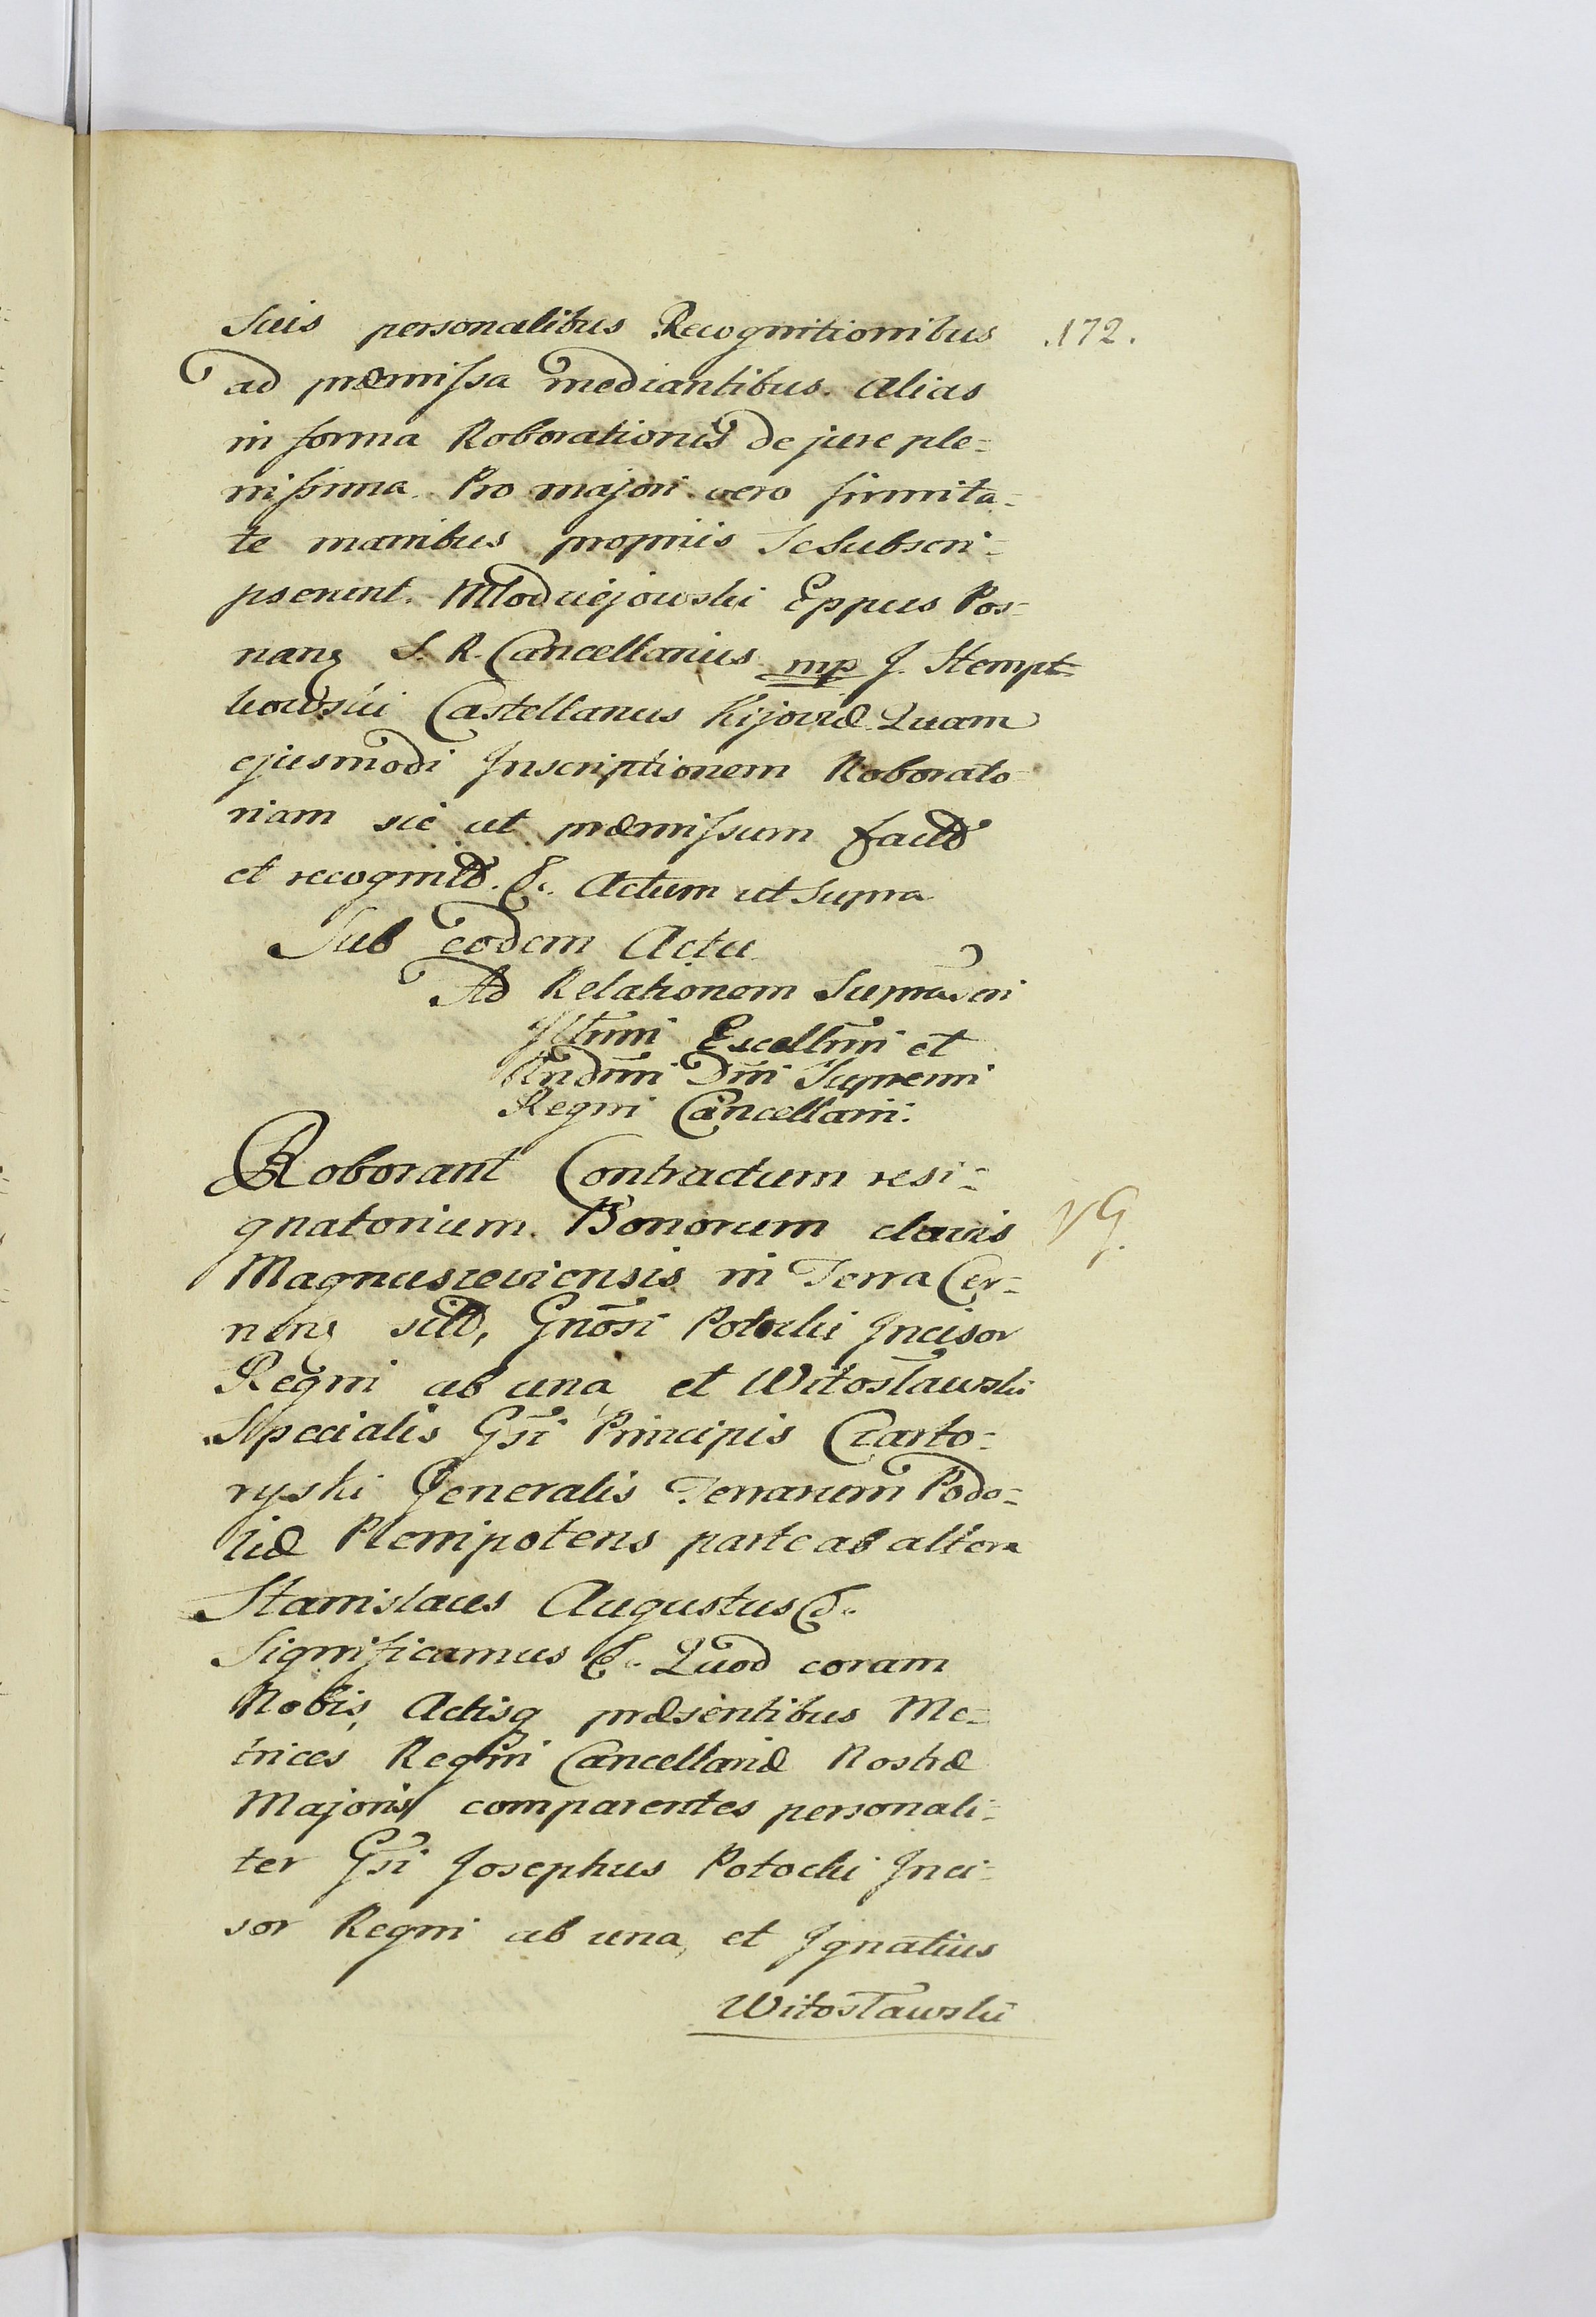 Suis personalibus Recognitionibus .172.
ad præmissa mediantibus. alias
in forma Roborationis de jure ple=
nissima. Pro majori vero firmita=
te manibus propriis se subscri=
pserunt. Młodziejowski Eppus Pos=
nanς S. R. Cancellarius mp J. Stempt=
kowski Castellanus Kijoviæ. Quam
ejusmodi Inscriptionem Roborato=
riam sic ut præmissum factæ
et recognitæ. &. Actum ut supra
Sub eodem Actu
Ad Relationem Suprascri
Illtrmi Excellmi et
Rndmi Dni Supremi
Regni Cancellarii.
Roborant Contractum resi=
gnatorium Bonorum clavis
Magnuszeviensis in Terra Cer=
nenς sitt, Gnosi Potocki Incisor
Regni ab una, et Witosławski
Specialis Gsi Principis Czarto=
ryski Generalis Terrarum Podo=
liæ Plenipotens parte ab altera
Stanislaus Augustus &.
Significamus &. Quod coram
Nobis, Actisq præsentibus Me=
trices Regni Cancellariæ Nostræ
Majoris comparentes personali=
ter Gsi Josephus Potocki Inci=
sor Regni ab una, et Ignatius
Witosławski